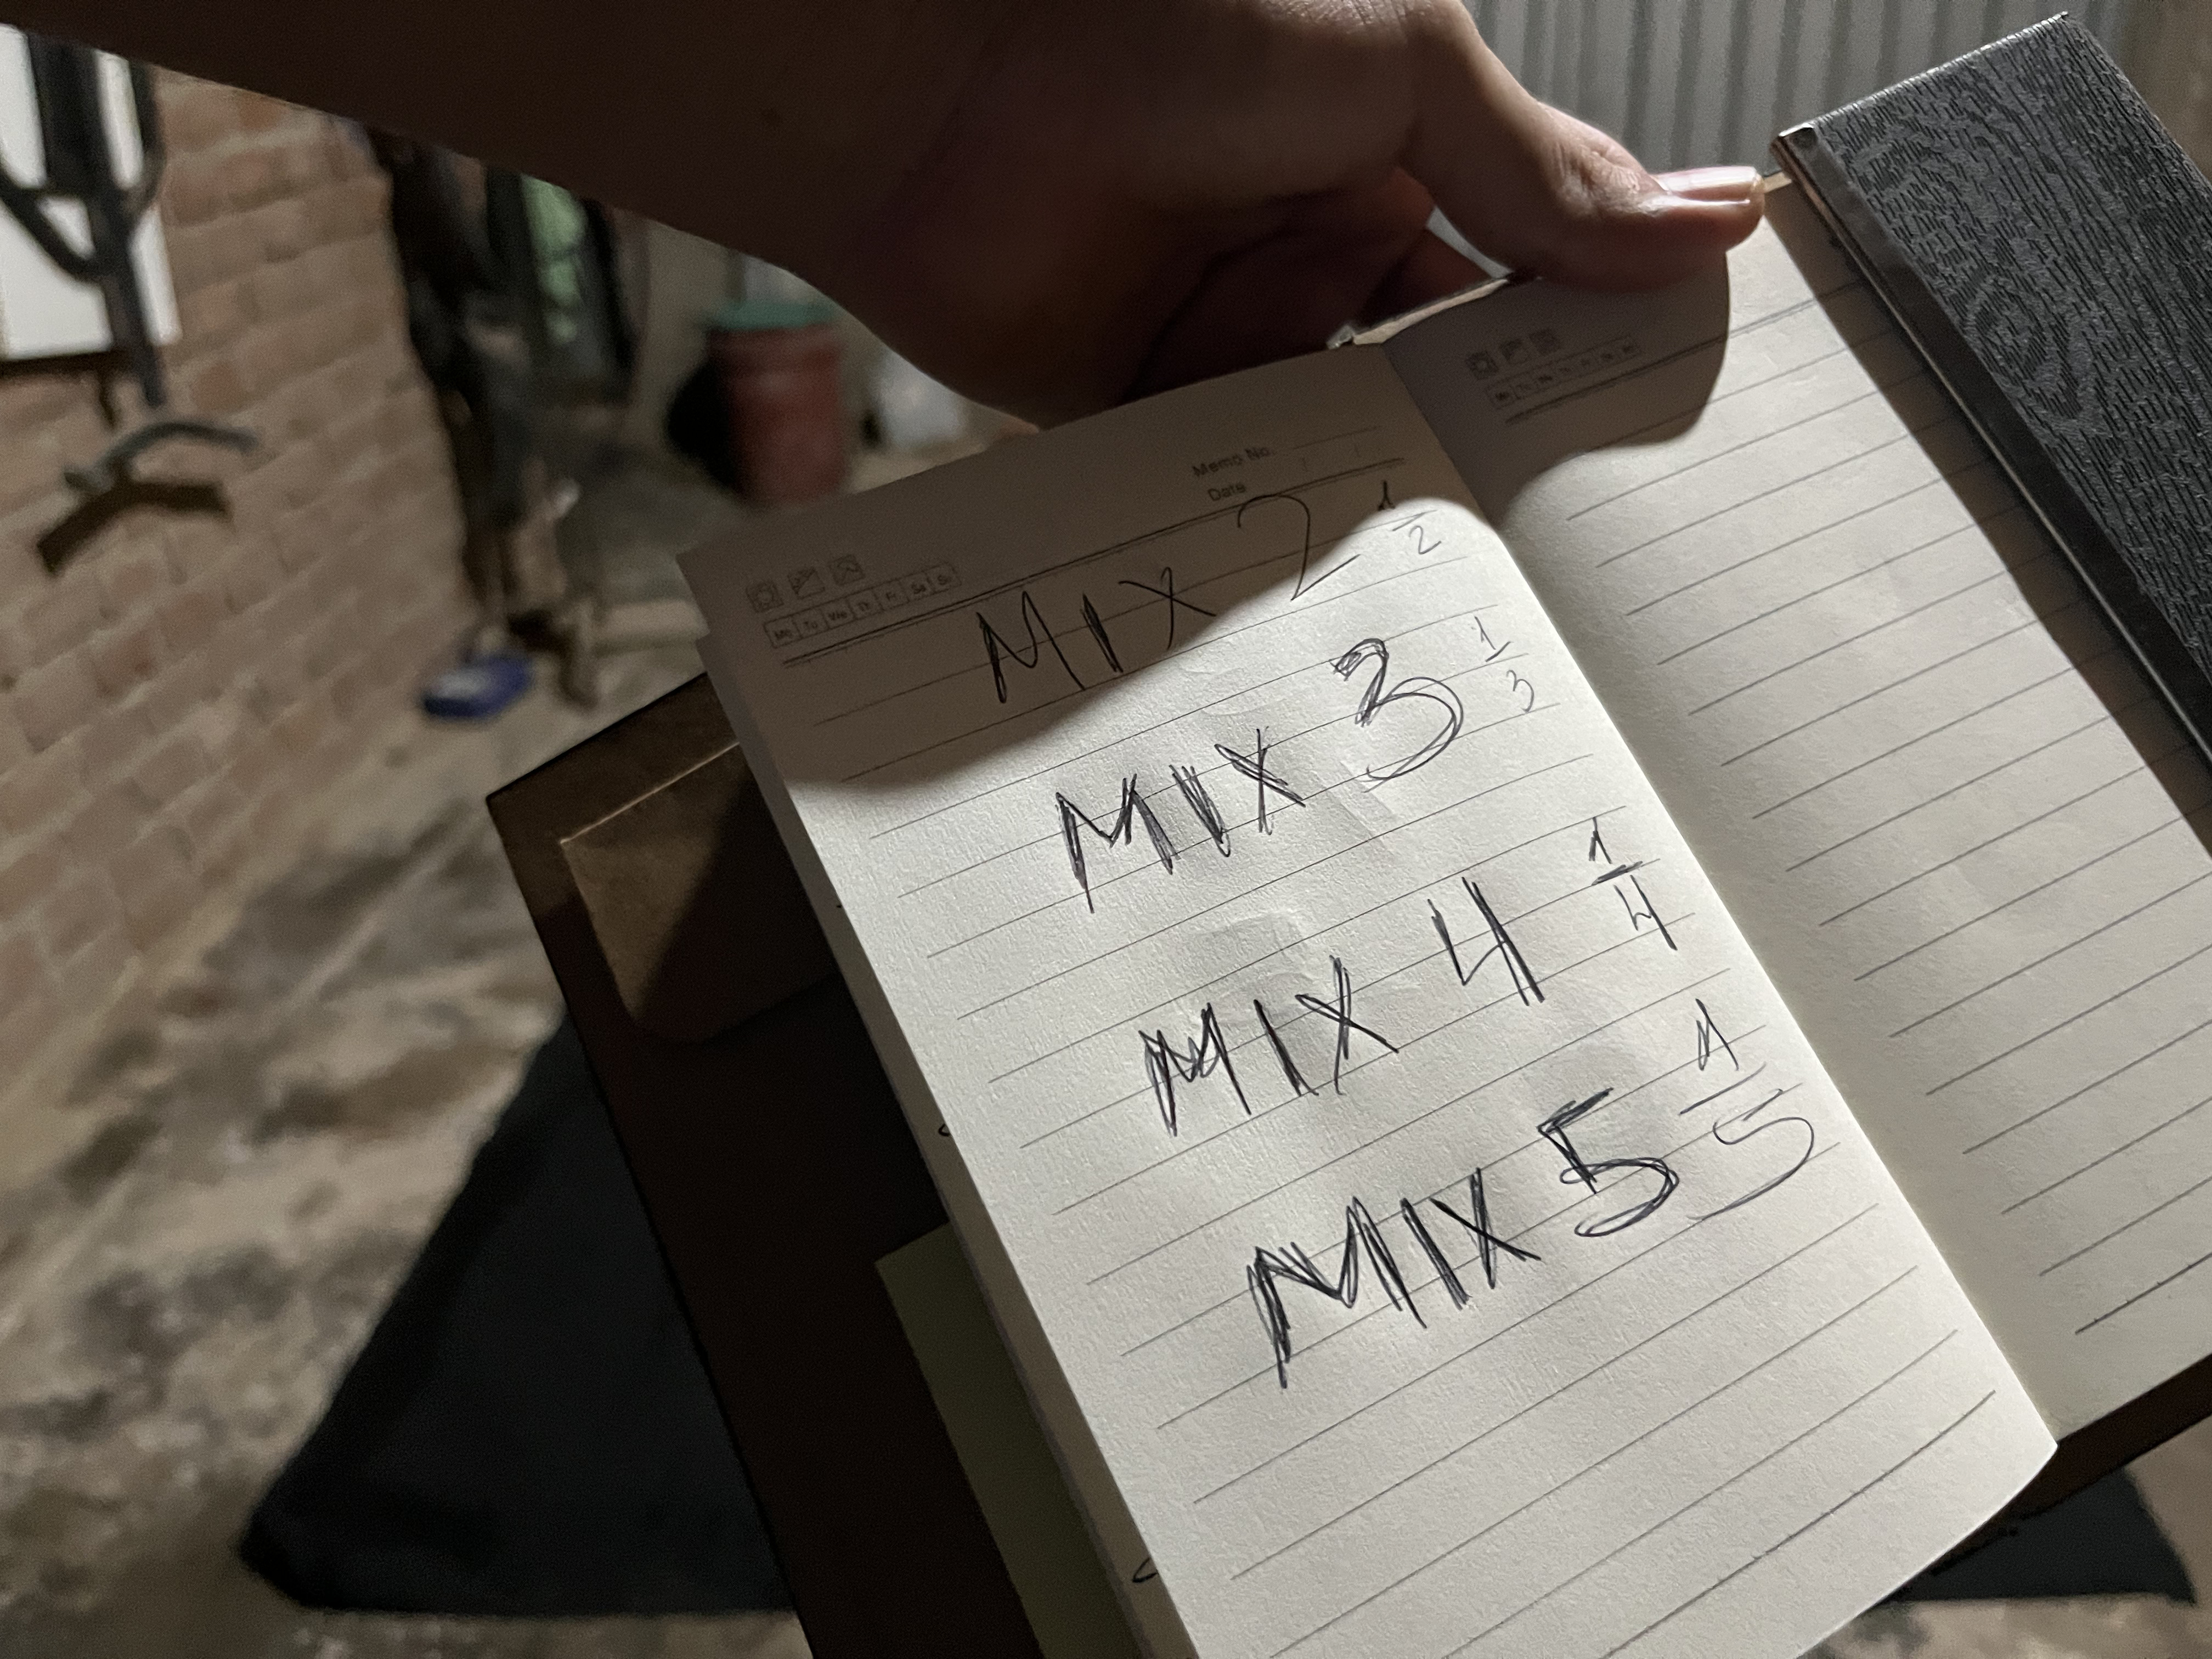 Memo No.
Date
Mo Tu We Th Fr Sa Su
MIX 2 1/2
MIX 3 1/3
MIX 4 1/4
MIX 5 1/5